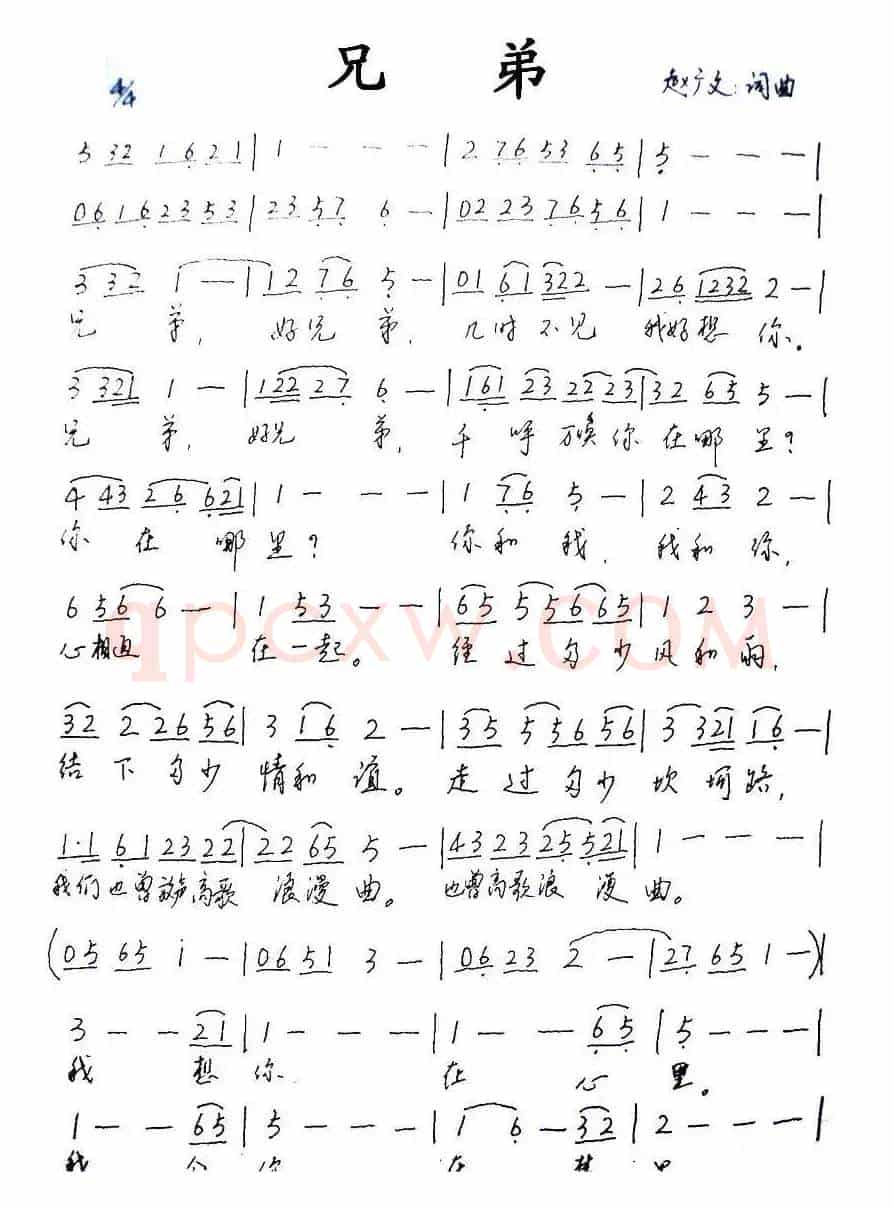 兄 弟
4/4
赵广文:词曲
5 32 1 6 21 | 1 - - - | 2 76 53 65 | 5 - - - |
06 16 23 53 | 23 57 6 - | 02 23 76 56 | 1 - - - |
3 32 1 - | 12 76 5 - | 01 61 322 - | 26 1232 2 - |
兄 弟, 好兄 弟, 几时不见 我好想 你。
3 321 1 - | 122 27 6 - | 161 23 22 23 | 32 65 5 - |
兄 弟, 好兄 弟, 千 呼 万唤 你 在 哪 里?
4 43 26 621 | 1 - - - | 1 76 5 - | 2 43 2 - |
你 在 哪 里? 你和 我, 我和 你,
6 56 6 - | 1 53 - - | 65 55 66 65 | 1 2 3 - |
qpcxw.com
心相连 在一起。 经 过 多 少 风和 雨,
32 2 26 56 | 3 16 2 - | 35 5 56 56 | 3 321 16 - |
结 下 多少 情和 谊。 走 过 多少 坎 坷路,
1·1 61 23 22 | 22 65 5 - | 43 23 25 521 | 1 - - - |
我们也曾 高歌 浪漫 曲。 也曾高歌浪 漫 曲。
(05 65 i - | 06 51 3 - | 06 23 2 - | 27 65 1 -)|
3 - - 21 | 1 - - - | 1 - - 65 | 5 - - - |
我 想 你 在 心 里。
1 - - 65 | 5 - - - | 1 6 - 32 | 2 - - - |
我